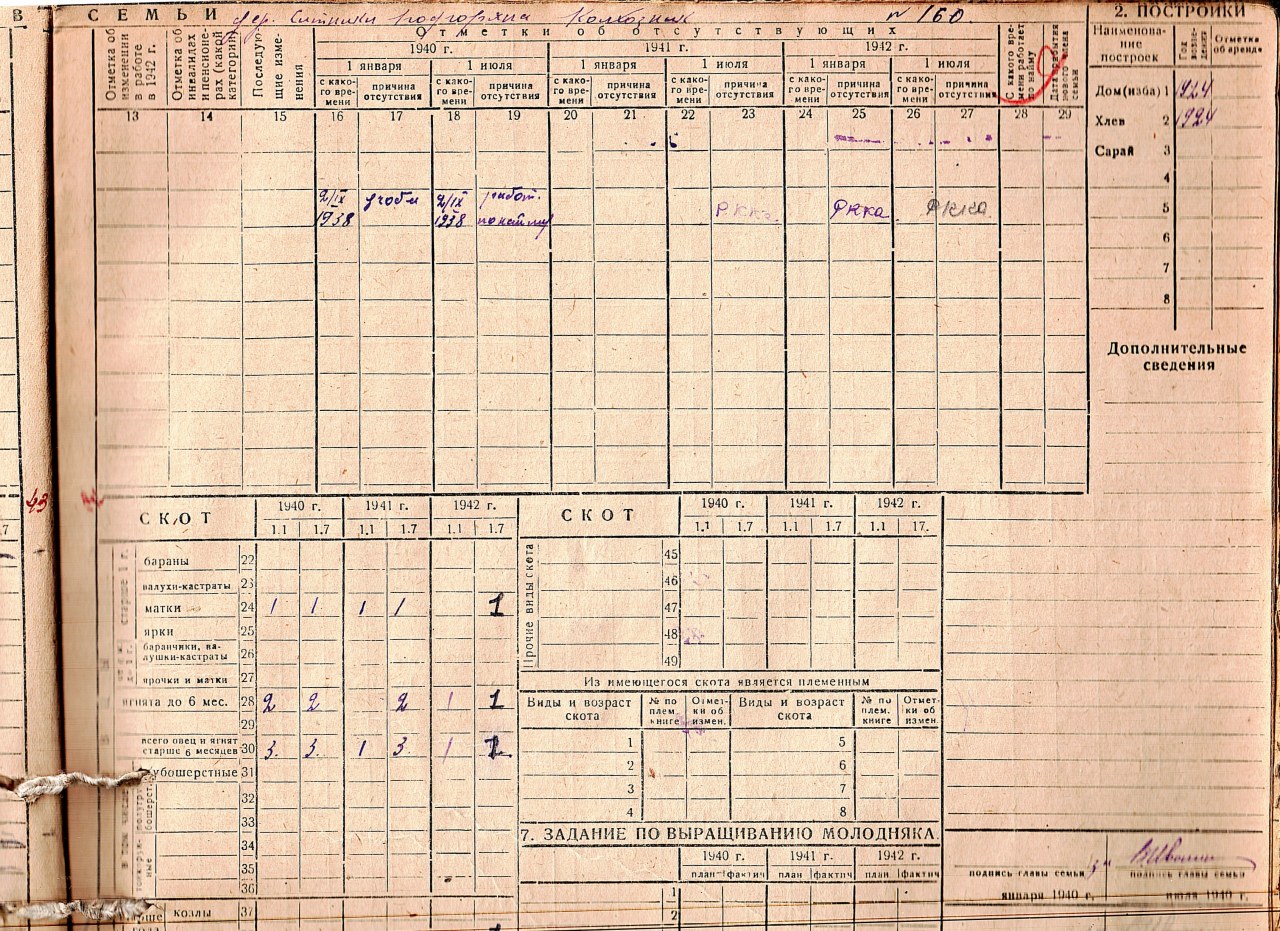 В
СЕМЬИ дер. Ситники Колхозник № 160.
Отметки об отсутствующих
1940 г. 1941 г. 1942 г.
1 января 1 июля 1 января 1 июля 1 января 1 июля
Отметка об изменении в работе в 1942 г.
Отметка об инвалидах и пенсионерах (какой категории)
Последующие изменения
с како-го времени причина отсутствия с како-го времени причина отсутствия с како-го времени причина отсутствия с како-го времени причина отсутствия с како-го времени причина отсутствия с како-го времени причина отсутствия
С какого времени работает по найму
13 14 15 16 17 18 19 20 21 22 23 24 25 26 27 28 29
2/IX учоби 2/IX работ.
1938 1938 по найму
РККа РККа РККа
2. ПОСТРОЙКИ
Наименова-
ние
построек
Год возве-дения
Отметка
об аренде
Дом(изба) 1 1924
Хлев 2 1924
Сарай 3
4
5
6
7
8
Дополнительные
сведения
43
СКОТ
1940 г. 1941 г. 1942 г.
1.1 1.7 1.1 1.7 1.1 1.7
старше 1 г.
бараны 22
валухи-кастраты 23
матки 24 1 1 1 1 1
ярки 25
баранчики, ва-
лушки-кастраты 26
ярочки и матки 27
ягнята до 6 мес. 28 2 2 2 1 1
29
всего овец и ягнят
старше 6 месяцев 30 3. 3. 1 3 1
убошерстные 31
32
33
34
35
36
козлы 37
СКОТ
1940 г. 1941 г. 1942 г.
1.1 1.7 1.1 1.7 1.1 17.
Прочие виды скота
45
46
47
48
49
Из имеющегося скота является племенным
Виды и возраст
скота
№ по
плем.
книге
Отмет-
ки об
измен.
Виды и возраст
скота
№ по
плем.
книге
Отмет-
ки об
измен.
1 5
2 6
3 7
4 8
7. ЗАДАНИЕ ПО ВЫРАЩИВАНИЮ МОЛОДНЯКА.
1940 г. 1941 г. 1942 г.
план фактич план фактич план фактич
1
2
подпись главы семьи подпись главы семьи
января 1940 г. июля 1940 г.